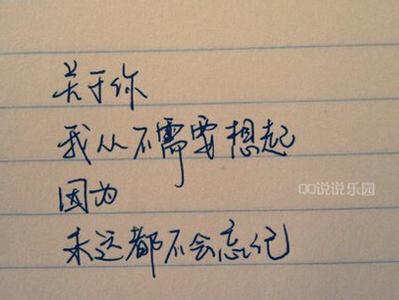 关于你
我从不需要想起
因为
QQ说说乐园
永远都不会忘记